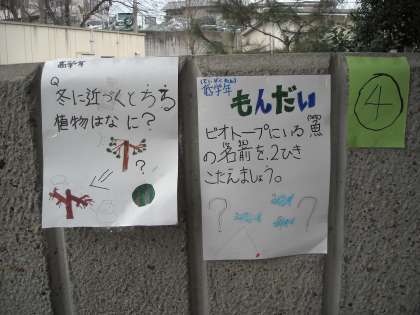 低学年
Q
冬に近づくとちる
植物はなに?
?
(ていがくねん)
低学年
もんだい
ビオトープにいる魚
の名前を、2ひき
こたえましょう。
? ?
④